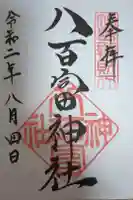 奉拝
八百富神社
令和二年八月四日